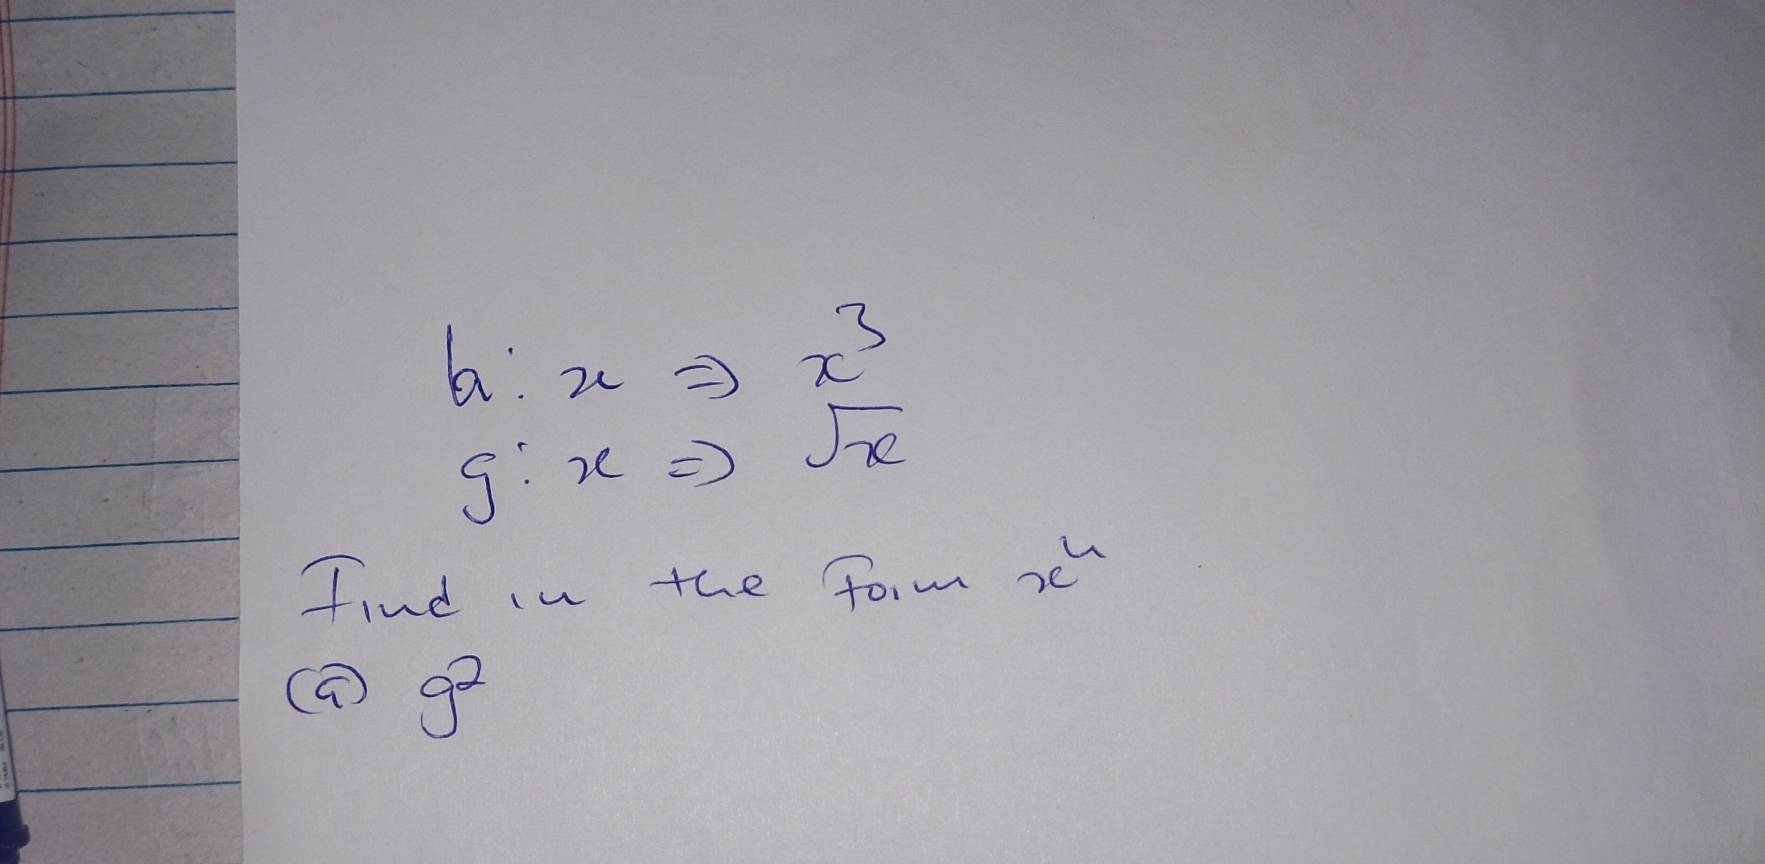 h: x ⇒ x³
g: x ⇒ √x
Find in the form xⁿ
(a) g²